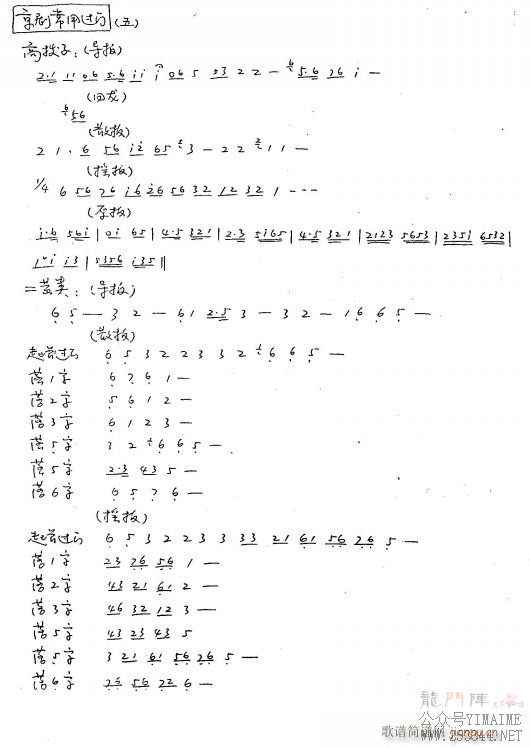 京剧常用过门(五)
高拨子:(导板)
2·1 11 06 5·6 i i i 06 5 53 2 2 — 5·6 26 i —
(回龙)
56
(散板)
2 1 · 6 56 i2 65 3 — 2 2 1 1 —
(摇板)
1/4 6 56 26 i6 26 56 32 12 32 1 - - -
(原板)
i·6 56i | 0i 65 | 4·5 321 | 2·3 5i65 | 4·5 321 | 2123 5653 | 235i 6532 |
i3 | 5356 i35 ‖
二黄类:(导板)
6 5 — 3 2 — 61 2·5 3 — 3 2 — 1 6 6 5 —
(散板)
起首过门 6 5 3 2 2 3 3 2 6 6 5 —
落1字 6 7 6 1 —
落2字 5 6 1 2 —
落3字 6 1 2 3 —
落5字 3 2 6 6 5 —
落5字 2·3 43 5 —
落6字 6 5 7 6 —
(摇板)
起首过门 6 5 3 2 2 3 3 33 21 61 56 26 5 —
落1字 23 76 56 1 —
落2字 43 21 61 2 —
落3字 46 32 12 3 —
落5字 43 23 43 5
落5字 3 21 61 56 26 5 —
落6字 26 56 22 6 —
龍門陣
公众号YIMAIME
歌谱简谱网